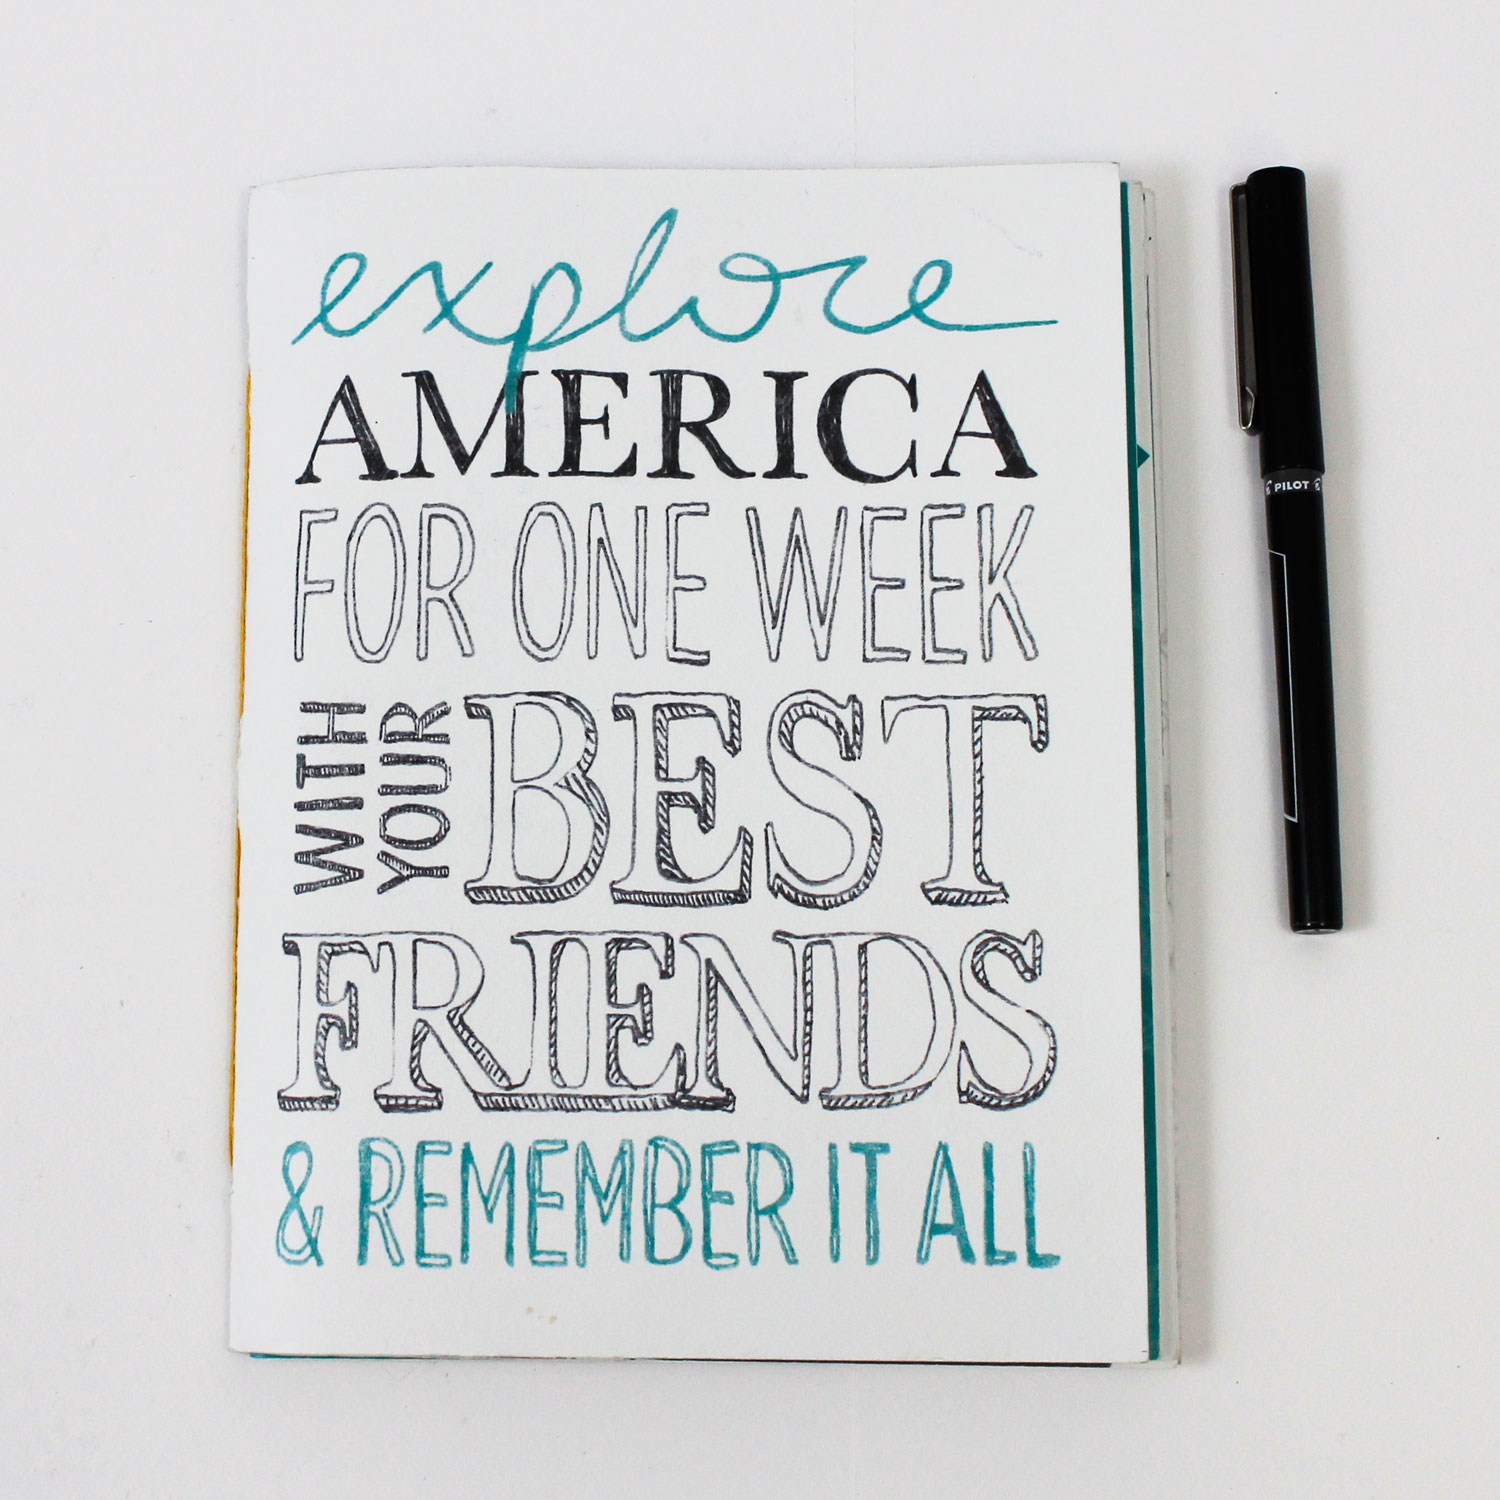 explore
AMERICA
FOR ONE WEEK
WITH
YOUR
BEST
FRIENDS
& REMEMBER IT ALL
PILOT